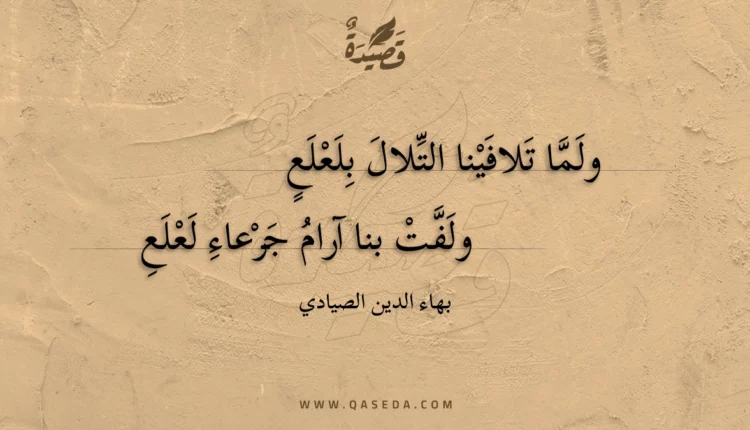 قَصِيْدَةٌ
ولَمَّا تَلافَيْنا التِّلالَ بِلَعْلَعٍ
ولَفَّتْ بنا آرامُ جَرْعاءِ لَعْلَعِ
بهاء الدين الصيادي
WWW.QASEDA.COM